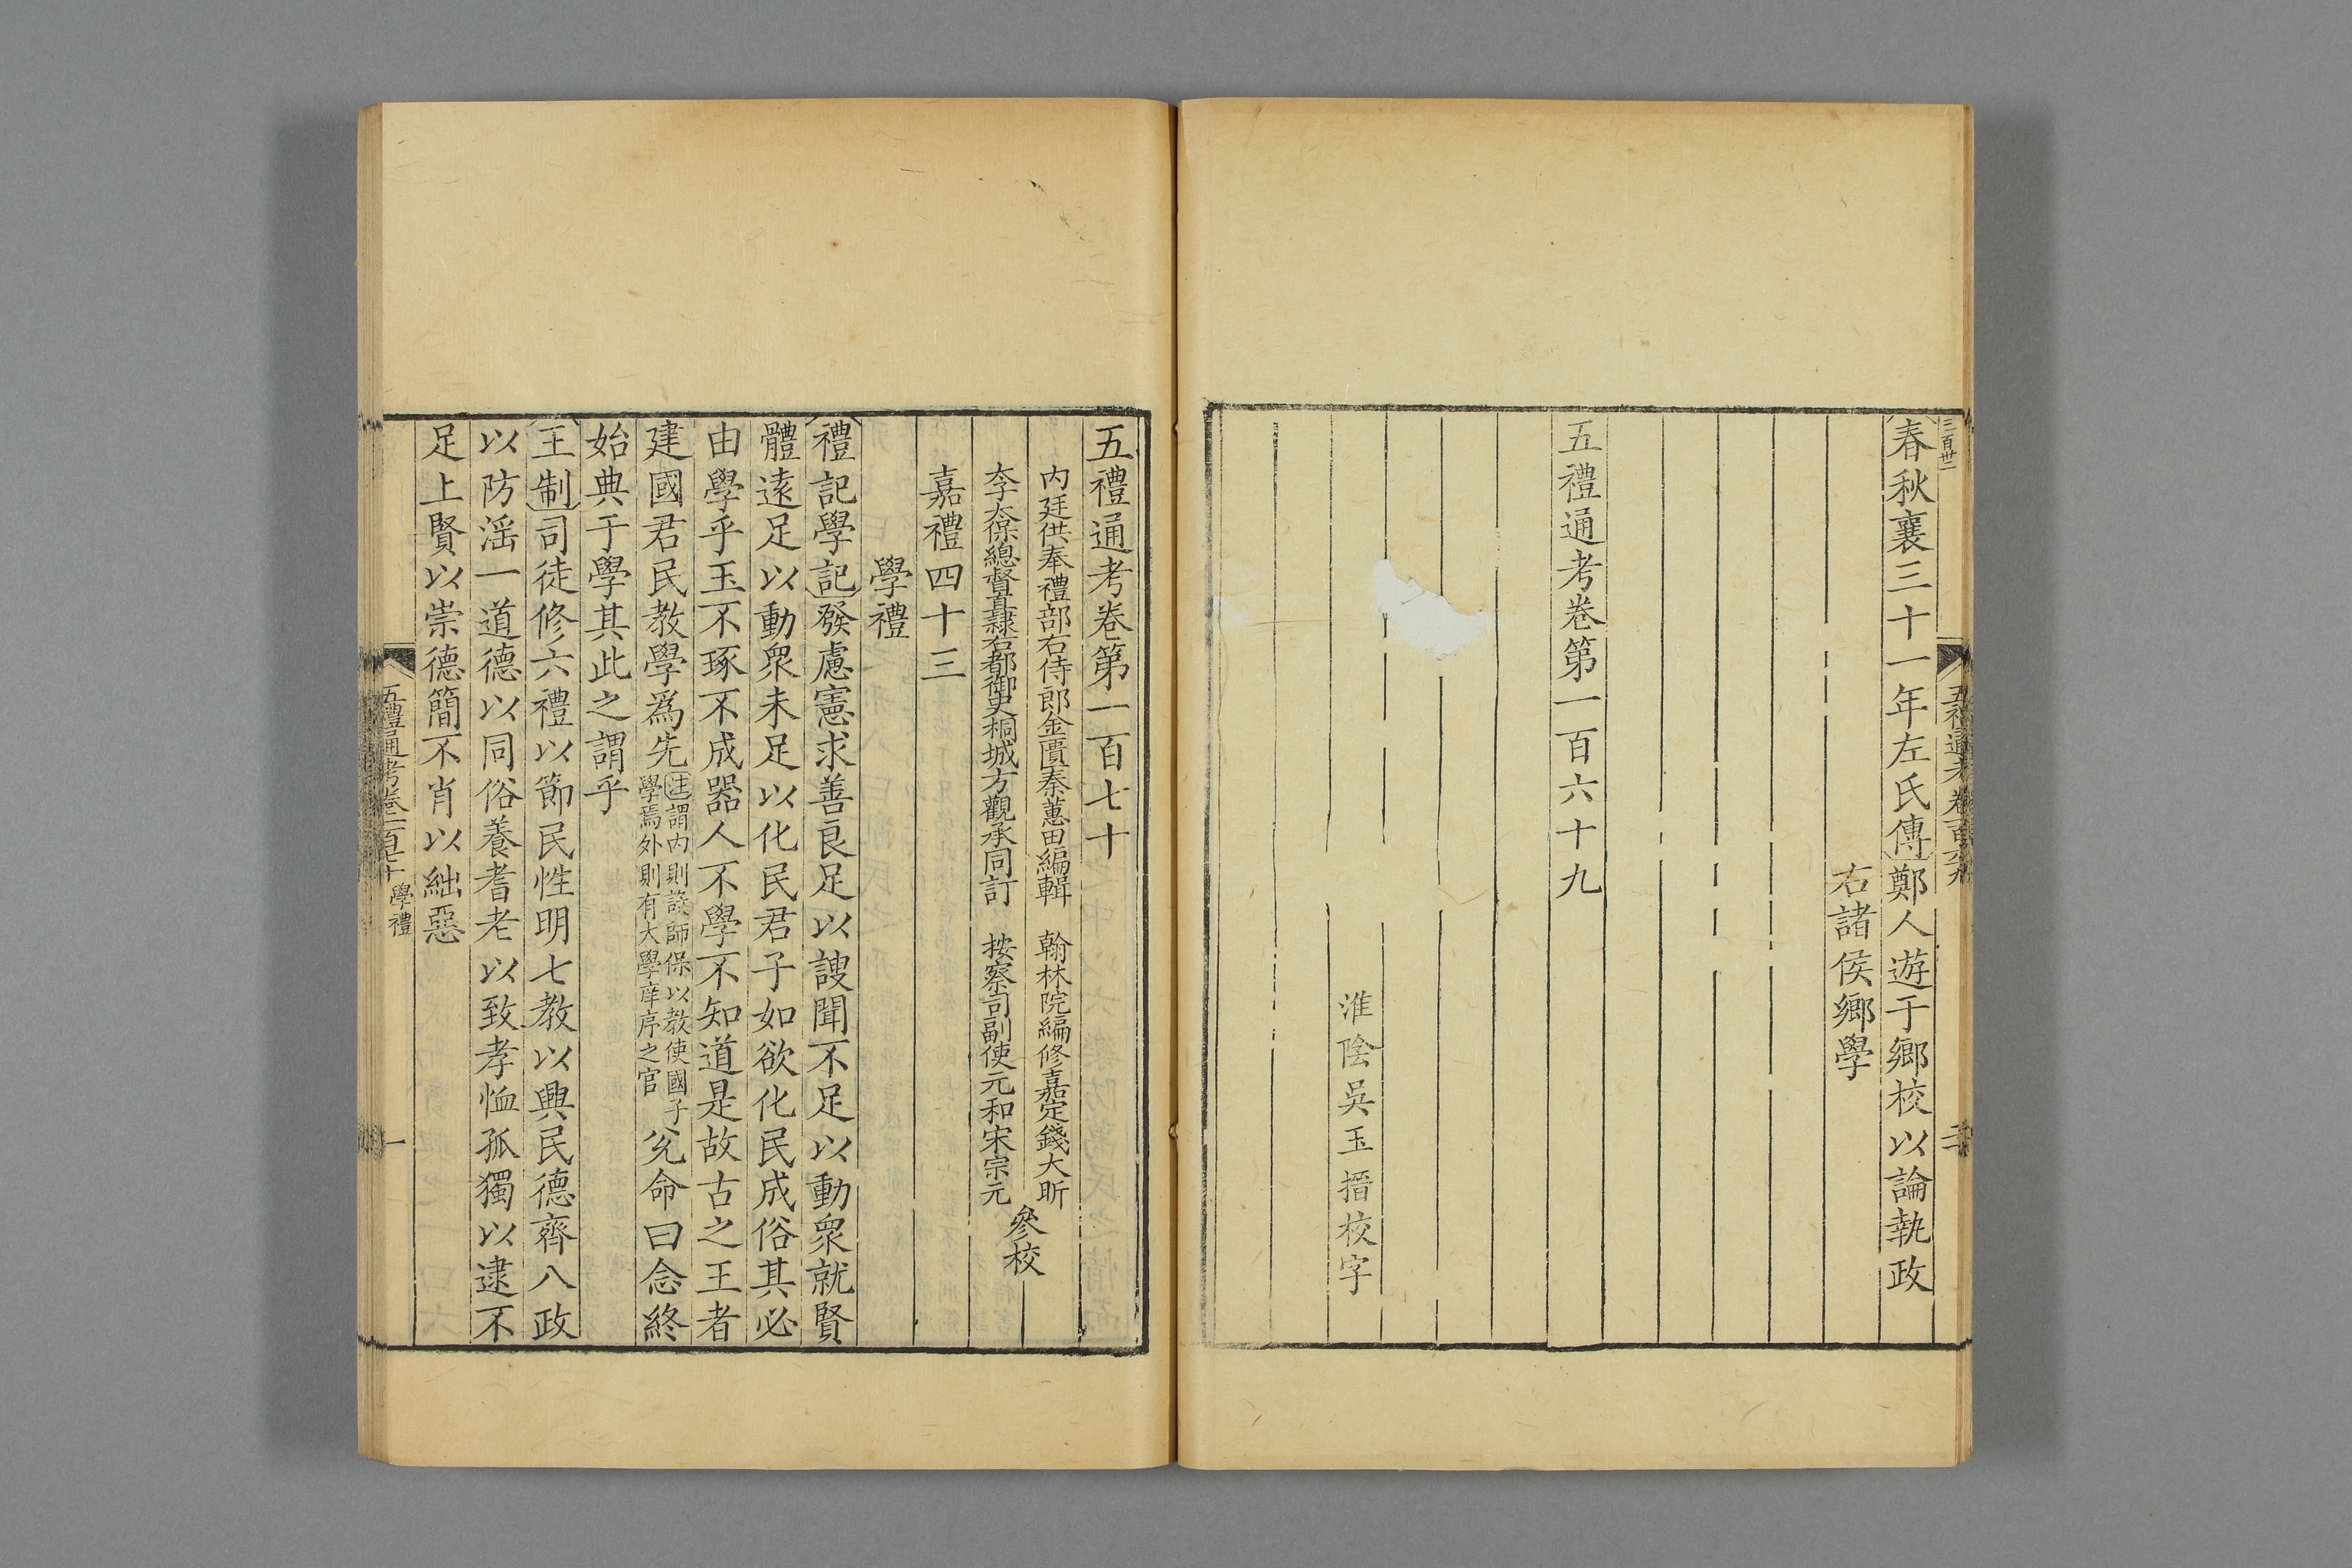 三百卅二
春秋襄三十一年左氏傳鄭人遊于鄉校以論執政
右諸侯鄉學
五禮通考卷第一百六十九
淮陰吳玉搢校字
五禮通考卷第一百七十
内廷供奉禮部右侍郎金匱秦蕙田編輯 翰林院編修嘉定錢大昕
太子太保總督直隸右都御史桐城方觀承同訂 按察司副使元和宋宗元
參校
嘉禮四十三
學禮
禮記學記發慮憲求善良足以謏聞不足以動衆就賢
體遠足以動衆未足以化民君子如欲化民成俗其必
由學乎玉不琢不成器人不學不知道是故古之王者
建國君民教學爲先注謂内則設師保以教使國子學焉外則有大學庠序之官兊命曰念終
始典于學其此之謂乎
王制司徒修六禮以節民性明七教以興民德齊八政
以防滛一道德以同俗養耆老以致孝恤孤獨以逮不
足上賢以崇德簡不肖以絀惡
五禮通考卷一百七十 學禮
一